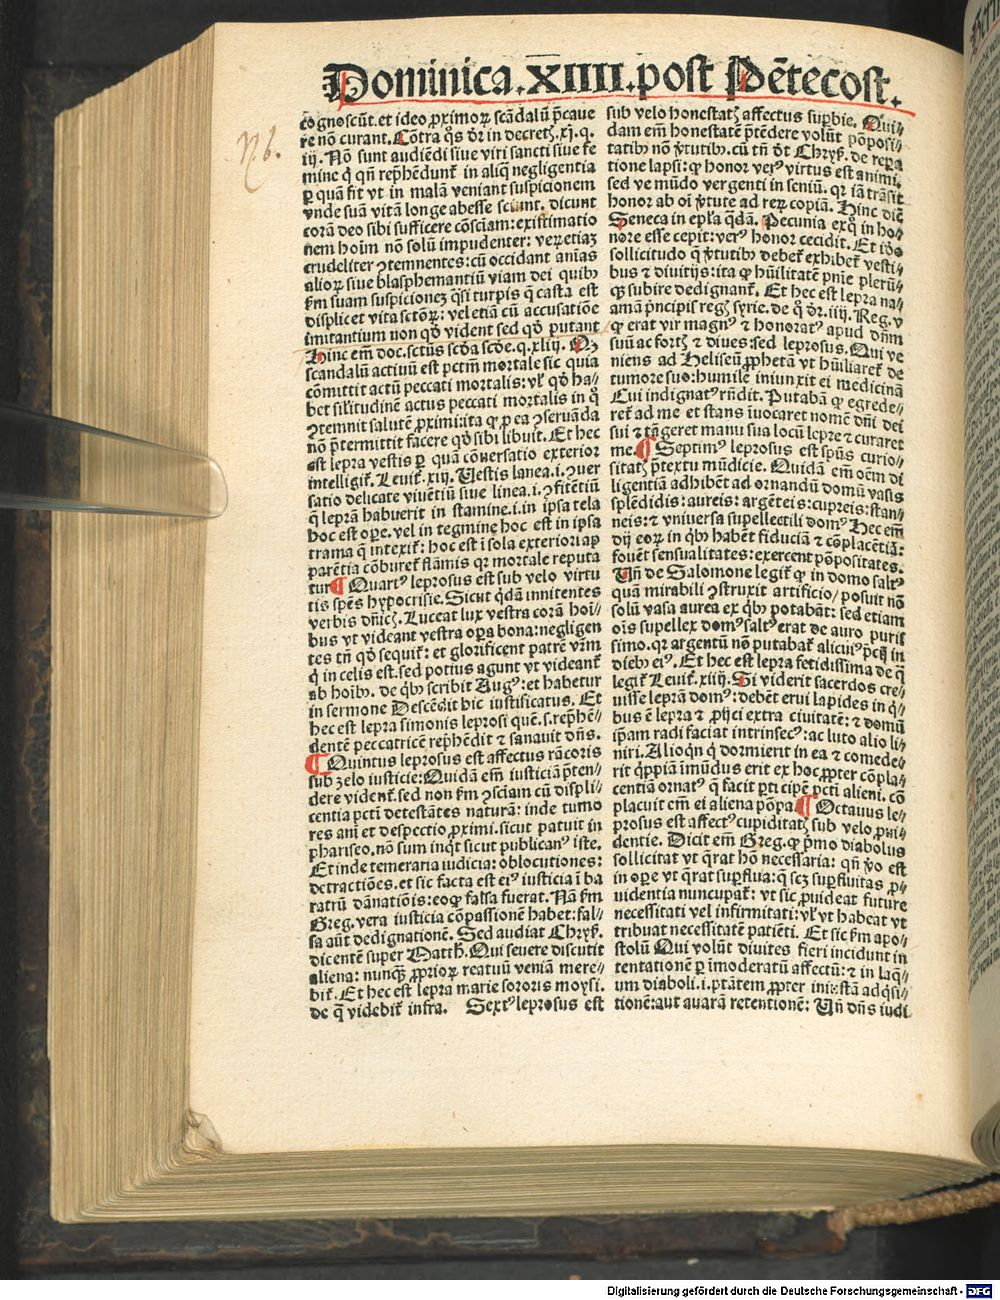 Dominica.XIIII.post Pētecost.
N.b.
cognoscūt.et ideo ꝓximoꝝ scādalū p̄caue
re nō curant. Cōtra q̄s dr̄ in decreꝭ.xj.q.
iij. Nō sunt audiēdi siue viri sancti siue fe
mine q̄ qn̄ rep̄hēdunt̄ in aliq̄ negligentia
ꝑ quā fit vt in malā veniant suspicionem
vnde suā vitā longe abesse sciunt. dicunt
corā deo sibi sufficere cōsciam:existimatio
nem hoīm nō solū impudenter: veꝝetiaꝫ
crudeliter ꝯtemnentes:cū occidant aīas
alioꝝ siue blasphemantiū viam dei quibꝰ
f̄m suam suspicioneꝫ q̄si turpis q̄ casta est
displicet vita sctōꝝ: vel etiā cū accusatiōe
imitantium non qd̓ vident sed qd̓ putant
Hinc em̄ doc.sctūs scd̓a scd̓e.q.xliij. Qꝫ
scandalū actiuū est pctm̄ mortale sic quia
cōmittit actū peccati mortalis: vl̓ qd̓ ha-
bet sil̓itudinē actus peccati mortalis in q̄
ꝯtemnit salutē ꝓximi:ita ꝙ ꝓ ea ꝯseruāda
nō p̄termittit facere qd̓ sibi libuit. Et hec
est lepra vestis ꝑ quā cōuersatio exterior
intelligit̄. Leuit̄.xiij. Uestis lanea.i.ꝯuer
satio delicate viuētiū siue linea.i.ꝯfitētiū
q̄ leprā habuerit in stamine.i.in ipsa tela
hoc est oꝑe.vel in tegmine hoc est in ipsa
trama q̄ intexit̄: hoc est ī sola exteriori ap
parētia cōburet̄ flāmis qꝛ mortale reputa
tur ¶ Quartꝰ leprosus est sub velo virtu
tis sp̄es hypocrisie. Sicut q̄dā innitentes
verbis dn̄icꝭ. Luceat lux vestra corā hoī-
bus vt videant vestra oꝑa bona:negligen
tes tn̄ qd̓ sequit̄: et glorificent patrē vr̄m
q̄ in celis est.sed potius agunt vt videant̄
ab hoībꝰ. de q̄bꝰ scribit Augꝰ:et habetur
in sermone Descēdit hic iustificatus. Et
hec est lepra simonis leprosi quē.s.rep̄hē-
dentē peccatricē rep̄hēdit ⁊ sanauit dn̄s.
¶ Quintus leprosus est affectus rācoris
sub zelo iusticie: Quidā em̄ iusticiā p̄ten-
dere vident̄.sed non f̄m ꝯsciam cū displi-
centia pcti detestātes naturā: inde tumo
res ani et despectio ꝓximi.sicut patuit in
phariseo.nō sum inqt̄ sicut publicanꝰ iste.
Et inde temeraria iudicia: oblocutiones:
detractiōes.et sic facta est eiꝰ iusticia ī ba
ratrū dānatiōis:eoꝙ falsa fuerat. Nā f̄m
Greg.vera iusticia cōpassionē habet:fal-
sa aūt dedignationē. Sed audiat Chryß.
dicentē super Matth̄. Qui seuere discutit
aliena: nunqꝫ ꝓprioꝝ reatuū veniā mere-
bit̄. Et hec est lepra marie sororis moysi.
de q̄ videbit̄ infra. Sextꝰ leprosus est
sub velo honestatꝭ affectus supbie. Qui-
dam em̄ honestatē p̄tendere volūt pōposi-
tatibꝰ nō v̓tutibꝰ.cū tn̄ dt̄ Chryß. de repa
tione lapsi: ꝙ honor verꝰ virtus est animi.
sed ve mūdo vergenti in seniū. qꝛ iā trāsit
honor ab oī v̓tute ad reꝝ copiā. Hinc dic̄
Seneca in epl̓a q̄dā. Pecunia exq̄ in ho-
nore esse cepit: verꝰ honor cecidit. Et iō
sollicitudo q̄ v̓tutibꝰ debet̄ exhibet̄ vesti-
bus ⁊ diuitijs: ita ꝙ hūilitatē pn̄ie pleru-
qꝫ subire dedignant̄. Et hec est lepra na-
amā p̄ncipis regꝭ syrie. de q̄ dr̄.iiij. Reg.v
ꝙ erat vir magnꝰ ⁊ honoratꝰ apud dn̄m
suū ac fortꝭ ⁊ diues:sed leprosus. Qui ve
niens ad Heliseū ꝓphetā vt hūiliaret̄ de
tumore suo: humile iniunxit ei medicinā
Cui indignatꝰ rn̄dit. Putabā ꝙ egrede-
ret̄ ad me et stans īuocaret nomē dn̄i dei
sui ⁊ tāgeret manu sua locū lepre ⁊ curaret
me. ¶ Septimꝰ leprosus est sp̄us curio-
sitatꝭ p̄textu mūdicie. Quidā em̄ oēm di
ligentiā adhibēt ad ornandū domū vasis
splēdidis: aureis: argēteis: cupreis: stan-
neis: ⁊ vniuersa supellectili domꝰ Hec em̄
dij eoꝝ in q̄bꝰ habēt fiduciā ⁊ cōplacētiā:
fouēt sensualitates: exercent pōpositates.
Un̄ de Salomone legit̄ ꝙ in domo saltꝰ
quā mirabili ꝯstruxit artificio/ posuit nō
solū vasa aurea ex q̄bꝰ potabāt: sed etiam
oīs supellex domꝰ saltꝰ erat de auro purif
simo. qꝛ argentū nō putabat̄ alicuiꝰ p̄cij in
diebꝰ eiꝰ. Et hec est lepra fetidissima de q̄
legit̄ Leuit̄.xiiij. Si viderit sacerdos cre-
uisse leprā domꝰ: debēt erui lapides in q̄-
bus ē lepra ⁊ ꝓijci extra ciuitatē: ⁊ domū
ip̄am radi faciat intrinsecꝰ: ac luto alio li-
niri. Alioqn̄ q̄ dormierit in ea ⁊ comede-
rit q̄ppiā īmūdus erit ex hoc. ꝓpter cōpla-
centiā ornatꝰ q̄ facit ꝑticipē pcti alieni. cō
placuit em̄ ei aliena pōpa. ¶ Octauus le-
prosus est affectꝰ cupiditatꝭ sub velo ꝓui-
dentie. Dicit em̄ Greg. ꝙ p̄mo diabolus
sollicitat vt q̄rat hō necessaria: qn̄ v̓o est
in oꝑe vt q̄rat suꝑflua: q̄ scꝫ suꝑfluitas ꝓ-
uidentia nuncupat̄: vt sic ꝓuideat future
necessitati vel infirmitati: vl̓ vt habeat vt
tribuat necessitatē patiēti. Et sic f̄m apo-
stolū Qui volūt diuites fieri incidunt in
tentationē ꝑ īmoderatū affectū: ⁊ in laq̄-
um diaboli.i.ptātem ꝓpter iniustā adq̄si-
tionē: aut auarā retentionē: Un̄ dn̄s iudi
Digitalisierung gefördert durch die Deutsche Forschungsgemeinschaft - DFG